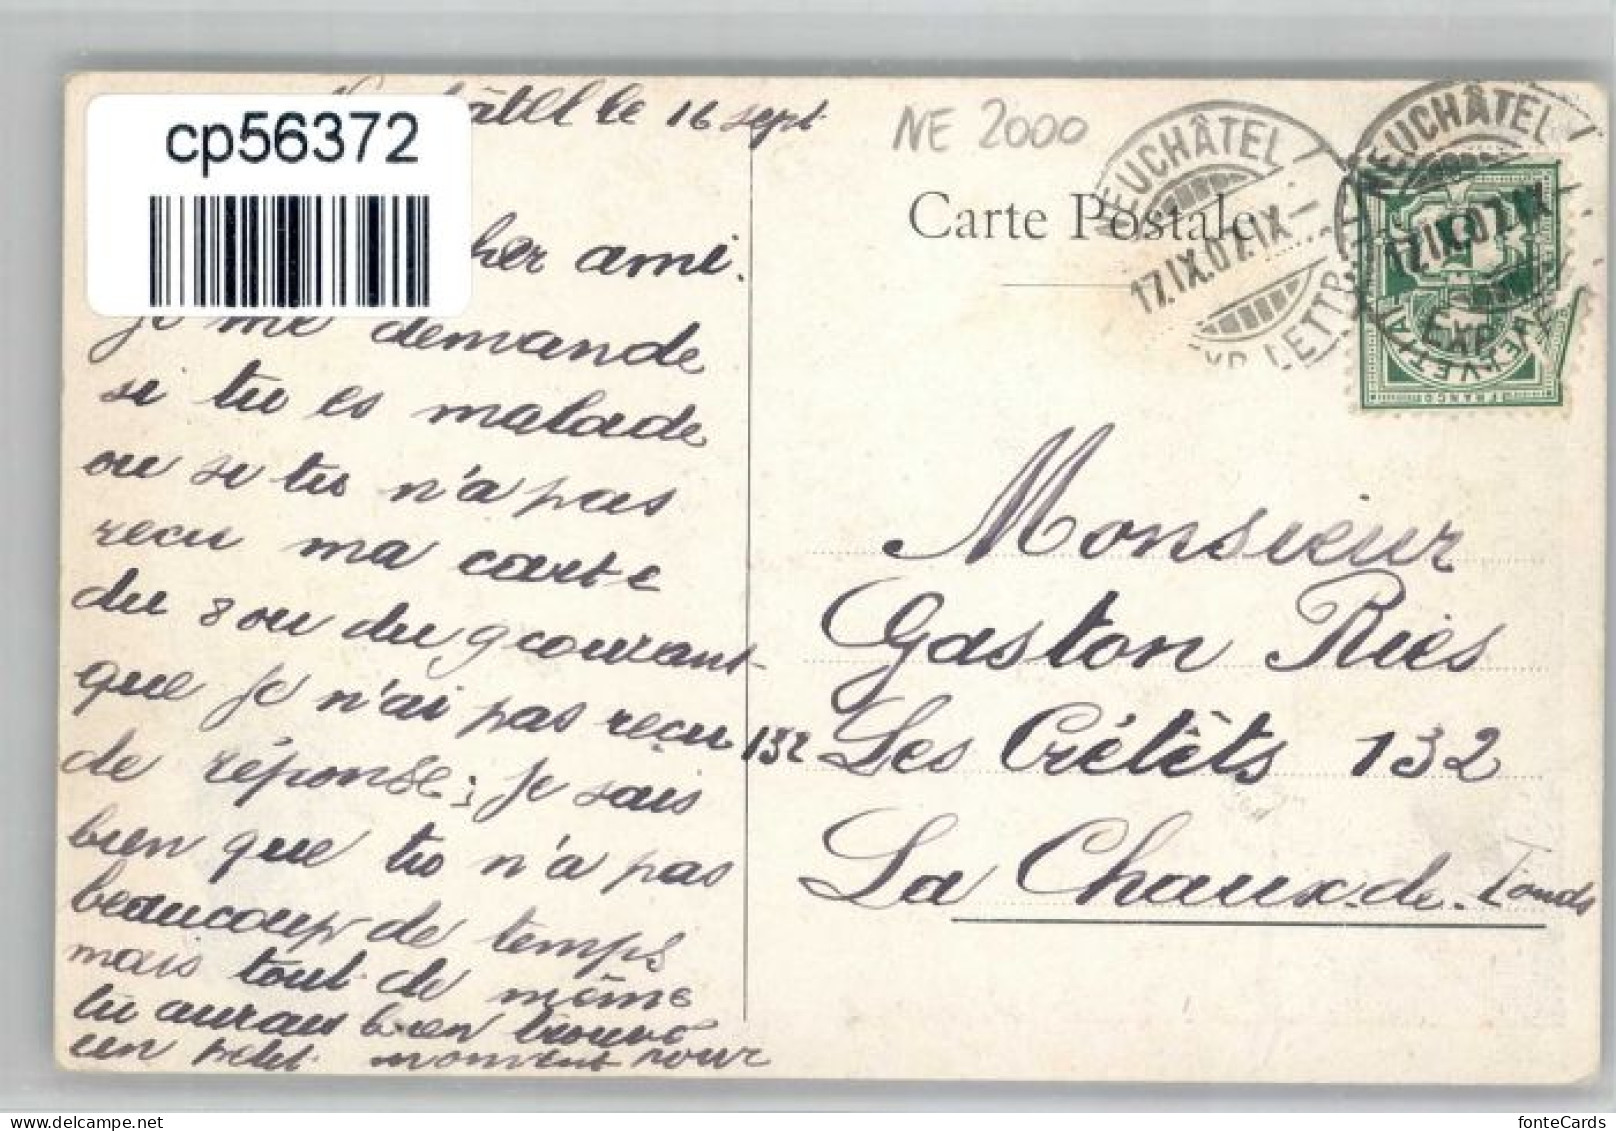 cp56372
âtel le 16 sept
NE 2000
NEUCHÂTEL
17.IX.07.IX
EXP. LETTR.
NEUCHÂTEL
17.IX.07.IX
EXP. LETTR.
HELVETIA
FRANCO
Carte Postale
her ami.
je me demande
si tu es malade
ou si tu n'a pas
recu ma carte
du 8 ou du 9 courant
que je n'ai pas reçu
de réponse; je sais
bien que tu n'a pas
beaucoup de temps
mais tout de même
tu aurais bien trouvé
un petit moment pour
132
Monsieur
Gaston Ries
Les Crétêts 132
La Chaux-de-Fonds
fonteCards
www.delcampe.net